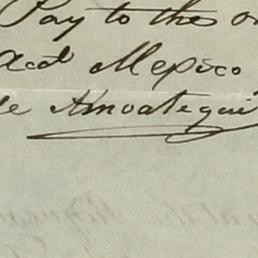 Pay to the o
Acct Mexico
de Amoategui